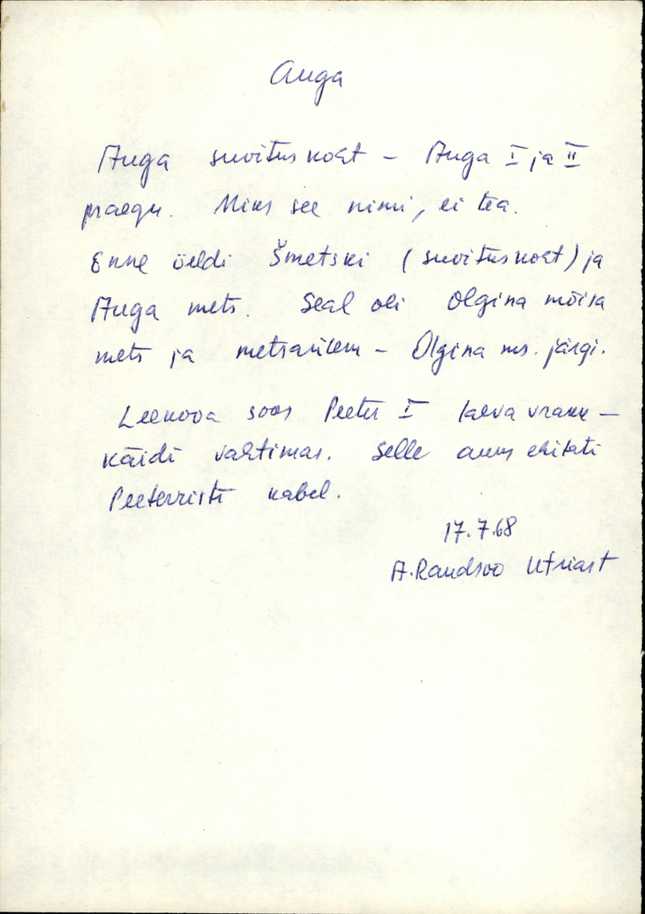 Auga
Auga suvituskoht – Auga I ja II
praegu. Miks see nimi, ei tea.
Enne öeldi Šmetski (suvituskoht) ja
Auga mets. Seal oli Olgina mõisa
mets ja metsaülem – Olgina ms. järgi.
Leekova soos Peeter I laeva vrakk –
käidi vahtimas. Selle auks ehitati
Peeterristi kabel.
17.7.68
A. Randsoo Utriast